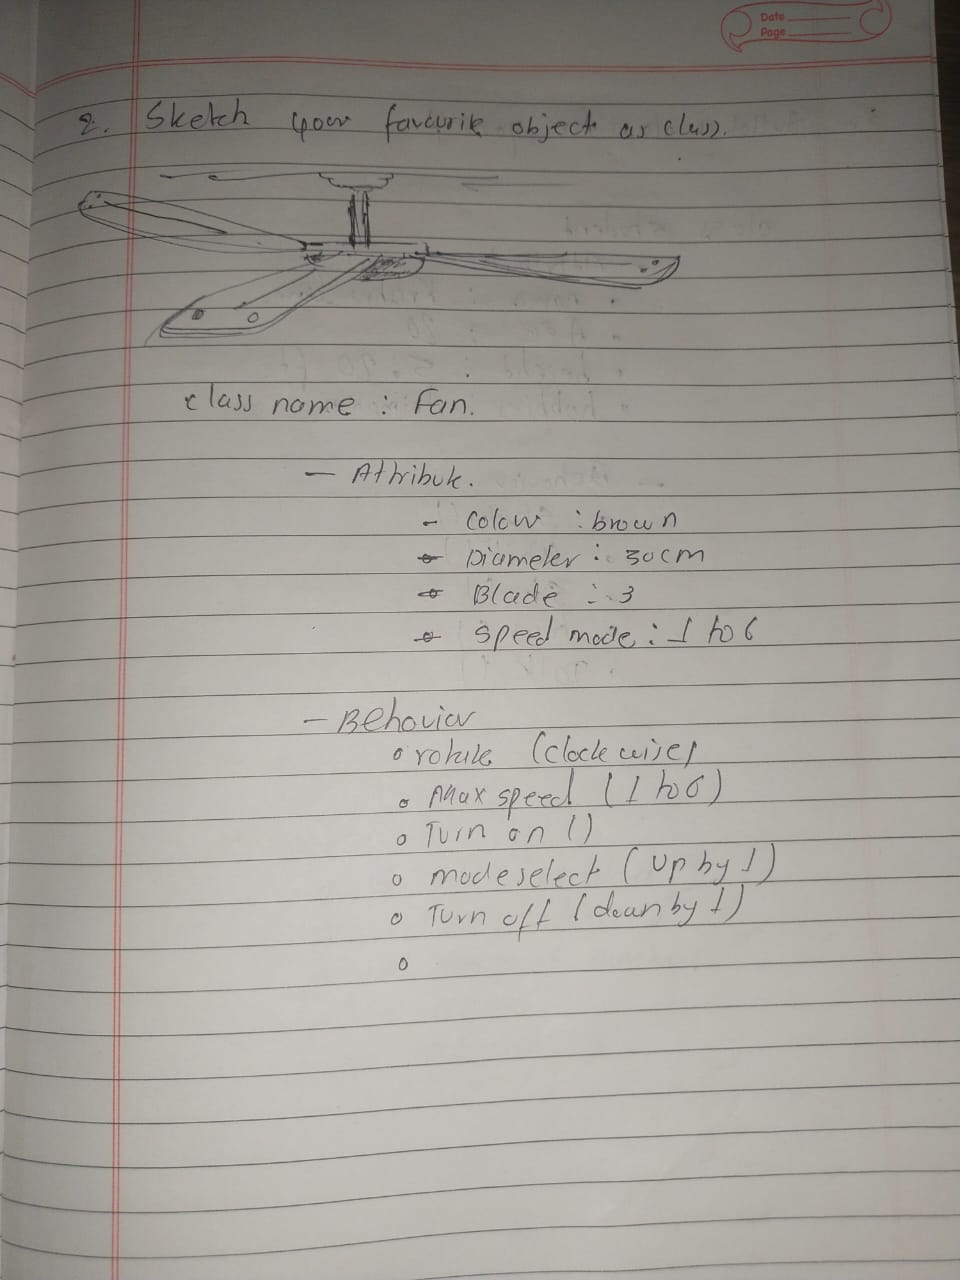 Date
Page
2. Sketch your favourite object as class.
class name : Fan.
- Attribute.
- Colour : brown
Diameter : 30cm
Blade : 3
Speed mode : 1 to 6
- Behavior
rotate (clock wise)
Max speed (1 to 6)
Turn on ()
mode select (up by 1)
Turn off (down by 1)